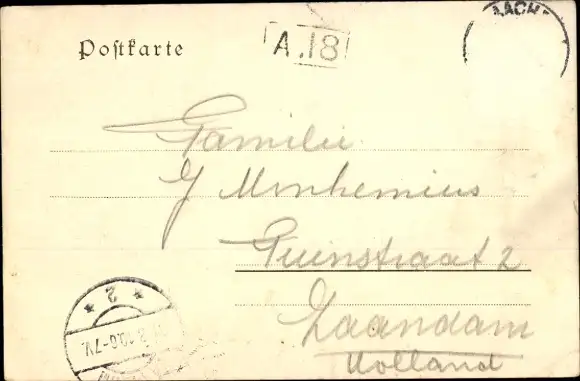 Postkarte
A.18
AACH
Familie
G Monhemius
Tuinstraat 2
Zaandam
Holland
* 2 *